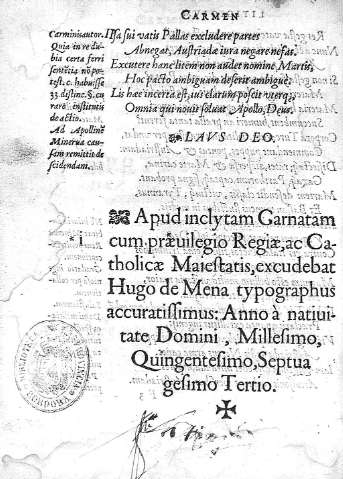 CARMEN
Carminis autor.
Quia in re dubia
bia certa ferri
sententia nō po-
test. c. habuisse
33. distinc. §. cu-
rare. institutis
de actio.
Ad Apollinē
Minerua cau-
sam remittit de
scidendam.
Illa sui vatis Pallas excludere partes
Abnegat, Austriadæ iura negare nefas.
Excutere hanc litem non audet nomine Martis,
Hoc pacto ambiguam deserit ambiguè.
Lis hæc incerta est, iut clarum poscit vterq;
Omnia qui nouit soluat Apollo, Deus.
LAVS DEO.
Apud inclytam Garnatam
cum præuilegio Regiæ, ac Ca-
tholicæ Maiestatis, excudebat
Hugo de Mena typographus
accuratissimus: Anno à natiui-
tate Domini, Millesimo,
Quingentesimo, Septua
gesimo Tertio.